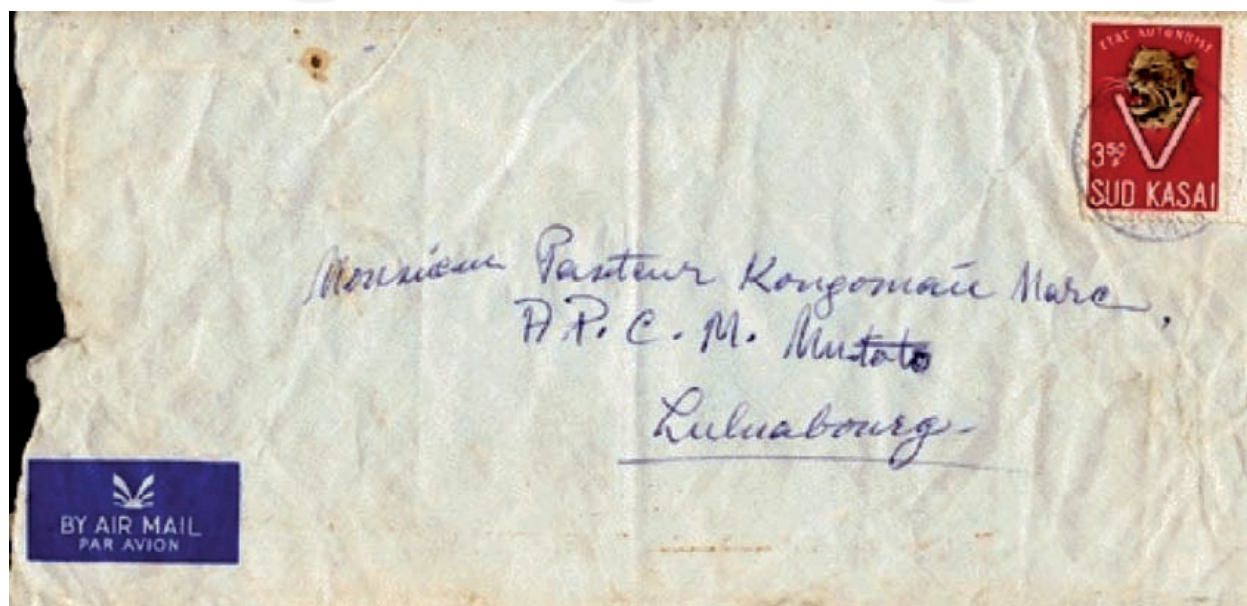 ETAT AUTONOME
3,50 F
SUD KASAI
Monsieur Pasteur Kongomaïe Marc,
A.P.C.M. Mutoto
Luluabourg-
BY AIR MAIL
PAR AVION